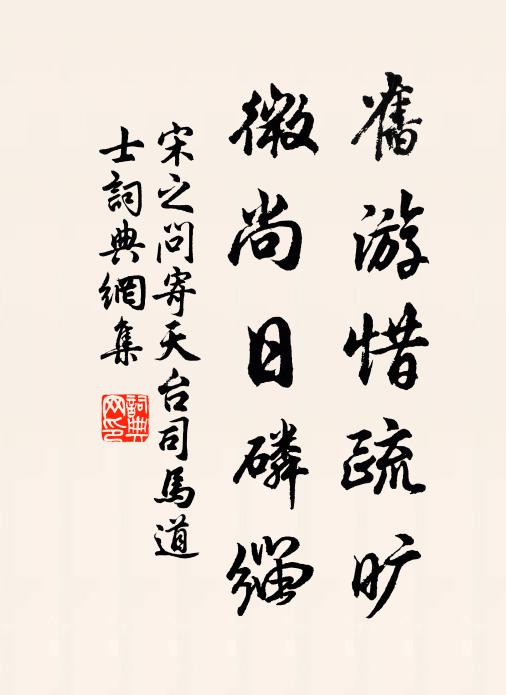 舊游惜疏旷
微尚日磷緇
宋之问寄天台司馬道
士詞典網集
詞典网印